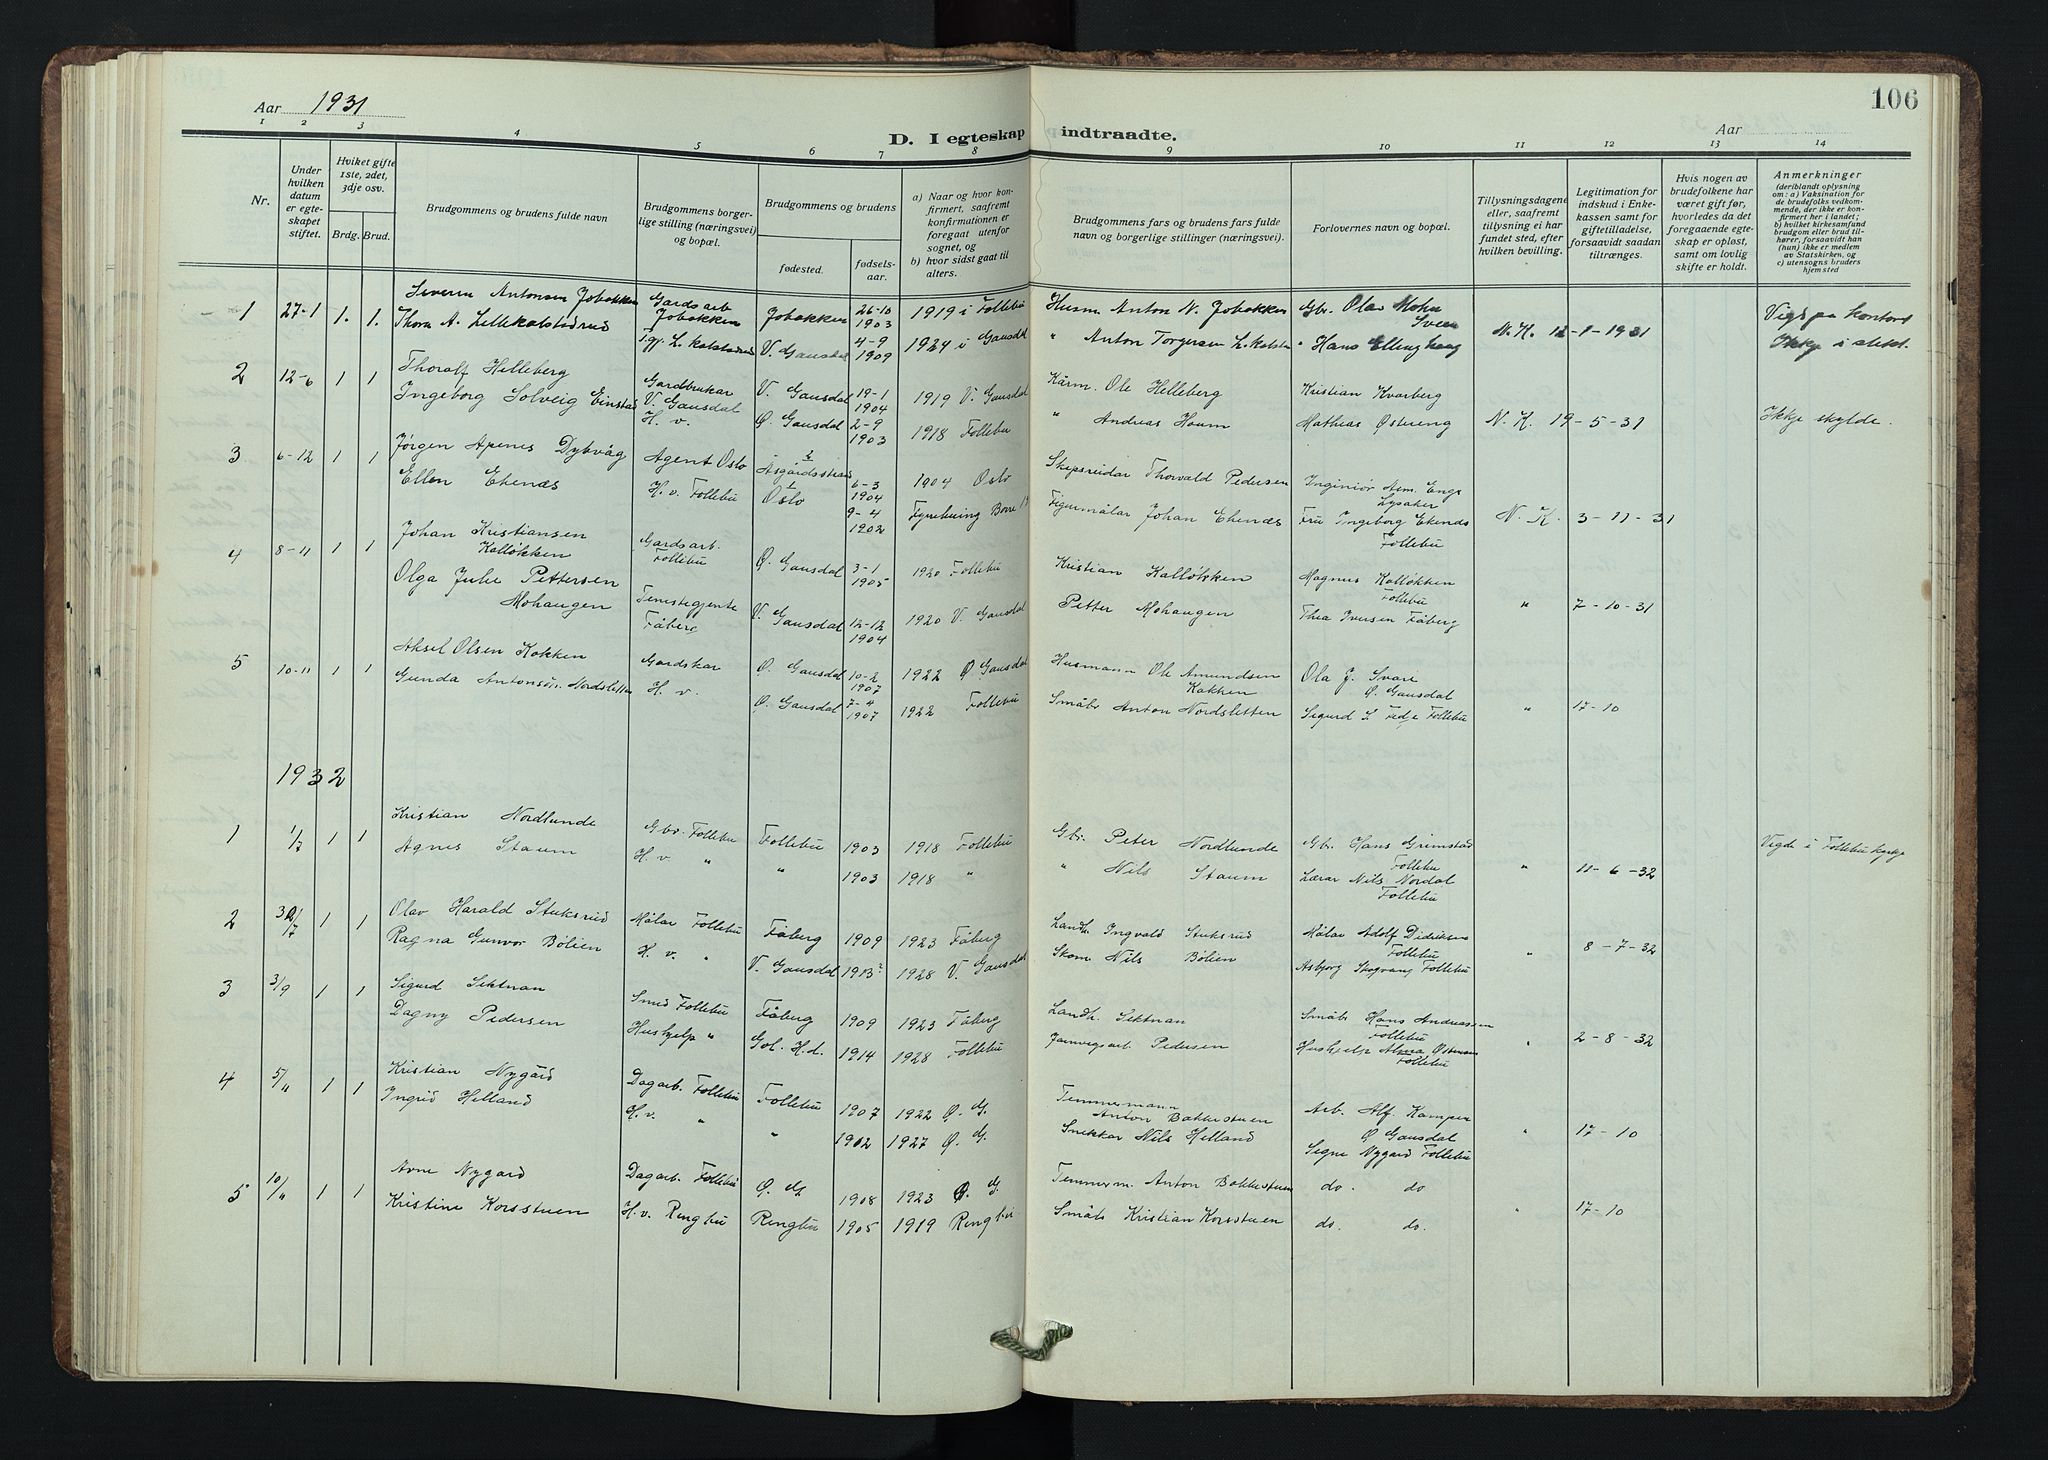 Aar 1931
106
D. I egteskap indtraadte.
Aar
1 2 3 4 5 6 7 8 9 10 11 12 13 14
Nr.
Under hvilken datum er egteskapet stiftet.
Hviket gifte 1ste, 2det, 3dje osv.
Brdg. Brud.
Brudgommens og brudens fulde navn
Brudgommens borgerlige stilling (næringsvei) og bopæl.
Brudgommens og brudens
fødested.
fødselsaar.
a) Naar og hvor konfirmert, saafremt konfirmationen er foregaat utenfor sognet, og
b) hvor sidst gaat til alters.
Brudgommens fars og brudens fars fulde navn og borgerlige stillinger (næringsvei).
Forlovernes navn og bopæl.
Tillysningsdagene eller, saafremt tillysning ei har fundet sted, efter hvilken bevilling.
Legitimation for indskud i Enkekassen samt for giftetilladelse, forsaavidt saadan tiltrænges.
Hvis nogen av brudefolkene har været gift før, hvorledes da det foregaaende egteskap er opløst, samt om lovlig skifte er holdt.
Anmerkninger
(deriblandt oplysning om: a) Vaksination for de brudefolks vedkommende, der ikke er konfirmert her i landet; b) hvilket kirkesamfund brudgom eller brud tilhører, forsaavidt han (hun) ikke er medlem av Statskirken, og c) utensogns bruders hjemsted
1 27-1 1. 1. Severin Antonsen Jobakken Gardsarb Jobakken Jobakken 26-10 1903 1919 i Follebu Husm Anton N. Jobakken Gbr. Olav Mohn Sveen N. K. 12-1-1931 Vigs pa kontoret
Thora A. Lillekolstadrud V. Gausdal 4-9 1909 1924 i Gausdal " Anton Torgersen " Hans Ellinghaug Ikkje i slekt.
2 12-6 1 1 Thoralf Helleberg Gardbrukar V. Gausdal V. Gausdal 19-1 1904 1919 V. Gausdal Kårm. Ole Helleberg Kristian Kvarberg
Ingeborg Solveig Einstad H. v. Ø. Gausdal 2-9 1903 1918 Follebu " Andreas Houm Mathias Østreng N. K. 19-5-31 Ikkje skylde.
3 6-12 1 1 Jørgen Apenes Dybvåg Agent Oslo Åsgårdsstrand 6-3 1904 1904 Oslo Skipsreidar Thorvald Pedersen Ingeniør Lysaker
Ellen Ekenæs H. v. Follebu Oslo 9-4 1902 Figurmålar Johan Ekenæs Fru Ingeborg Ekenæs Follebu N. K. 3-11-31
4 8-11 1 1 Johan Kristiansen Kalløkken Gardsarb. Follebu Ø. Gausdal 3-1 1905 1920 Follebu Kristian Kalløkken Magnus Kalløkken Follebu
Olga Julie Pettersen Mohaugen Tenestegjente Fåberg V. Gausdal 12-12 1904 1920 V. Gausdal Petter Mohaugen Thea Iversen Fåberg " 7-10-31
5 10-11 1 1 Aksel Olsen Kakken Gardskar Ø. Gausdal 10-2 1907 1922 Ø Gausdal Husmann Ole Amundsen Kakken Ola J. Svare Ø. Gausdal
Gunda Antonsen Nordsletten H. v. Ø. Gausdal 7-4 1907 1922 Follebu Småbr Anton Nordsletten Sigurd S. Follebu " 17-10
1932
1 1/7 1 1 Kristian Nordlunde Gbr. Follebu Follebu 1903 1918 Follebu Gbr. Peter Nordlunde Gbr. Hans Grimstad Follebu Vigde i Follebu kyrkje
Agnes Staum H. v. " " 1903 1918 " " Nils Staum Lærar Nils Nordal Follebu " 11-6-32
2 30/7 1 1 Olav Harald Stuksrud Målar Follebu Fåberg 1909 1923 Fåberg Landh. Ingvald Stuksrud Målar Adolf Didriksen Follebu
Ragna Gunvor Bølien H. v. " V. Gausdal 1913 1928 V. Gausdal Skom Nils Bølien Asbjørg Skogvang Follebu " 8-7-32
3 3/9 1 1 Sigurd Siktnan Smed Follebu Fåberg 1909 1923 Fåberg Landh. Siktnan Småbr Hans Andreassen Follebu
Dagny Pedersen Hushjelp " Gol. H.d. 1914 1928 Follebu Jarnvegsarb. Pedersen Hushjelp Alma Follebu " 2-8-32
4 5/11 1 1 Kristian Nygård Dagarb. Follebu Follebu 1907 1922 Ø. G. Temmermann Anton Bakkestuen Arb. Alf. Kampen Ø Gausdal
Ingrid Helland H. v. " " 1912 1927 Ø. G. Snekkar Nils Helland Signe Nygård Follebu " 17-10
5 10/11 1 1 Arne Nygard Dagarb. Follebu Ø. G. 1908 1923 Ø. G. Temmerm. Anton Bakkestuen do. do
Kristine Korsstuen H. v. Ringbu Ringbu 1905 1919 Ringbu Småb Kristian Korsstuen do. do. " 17-10